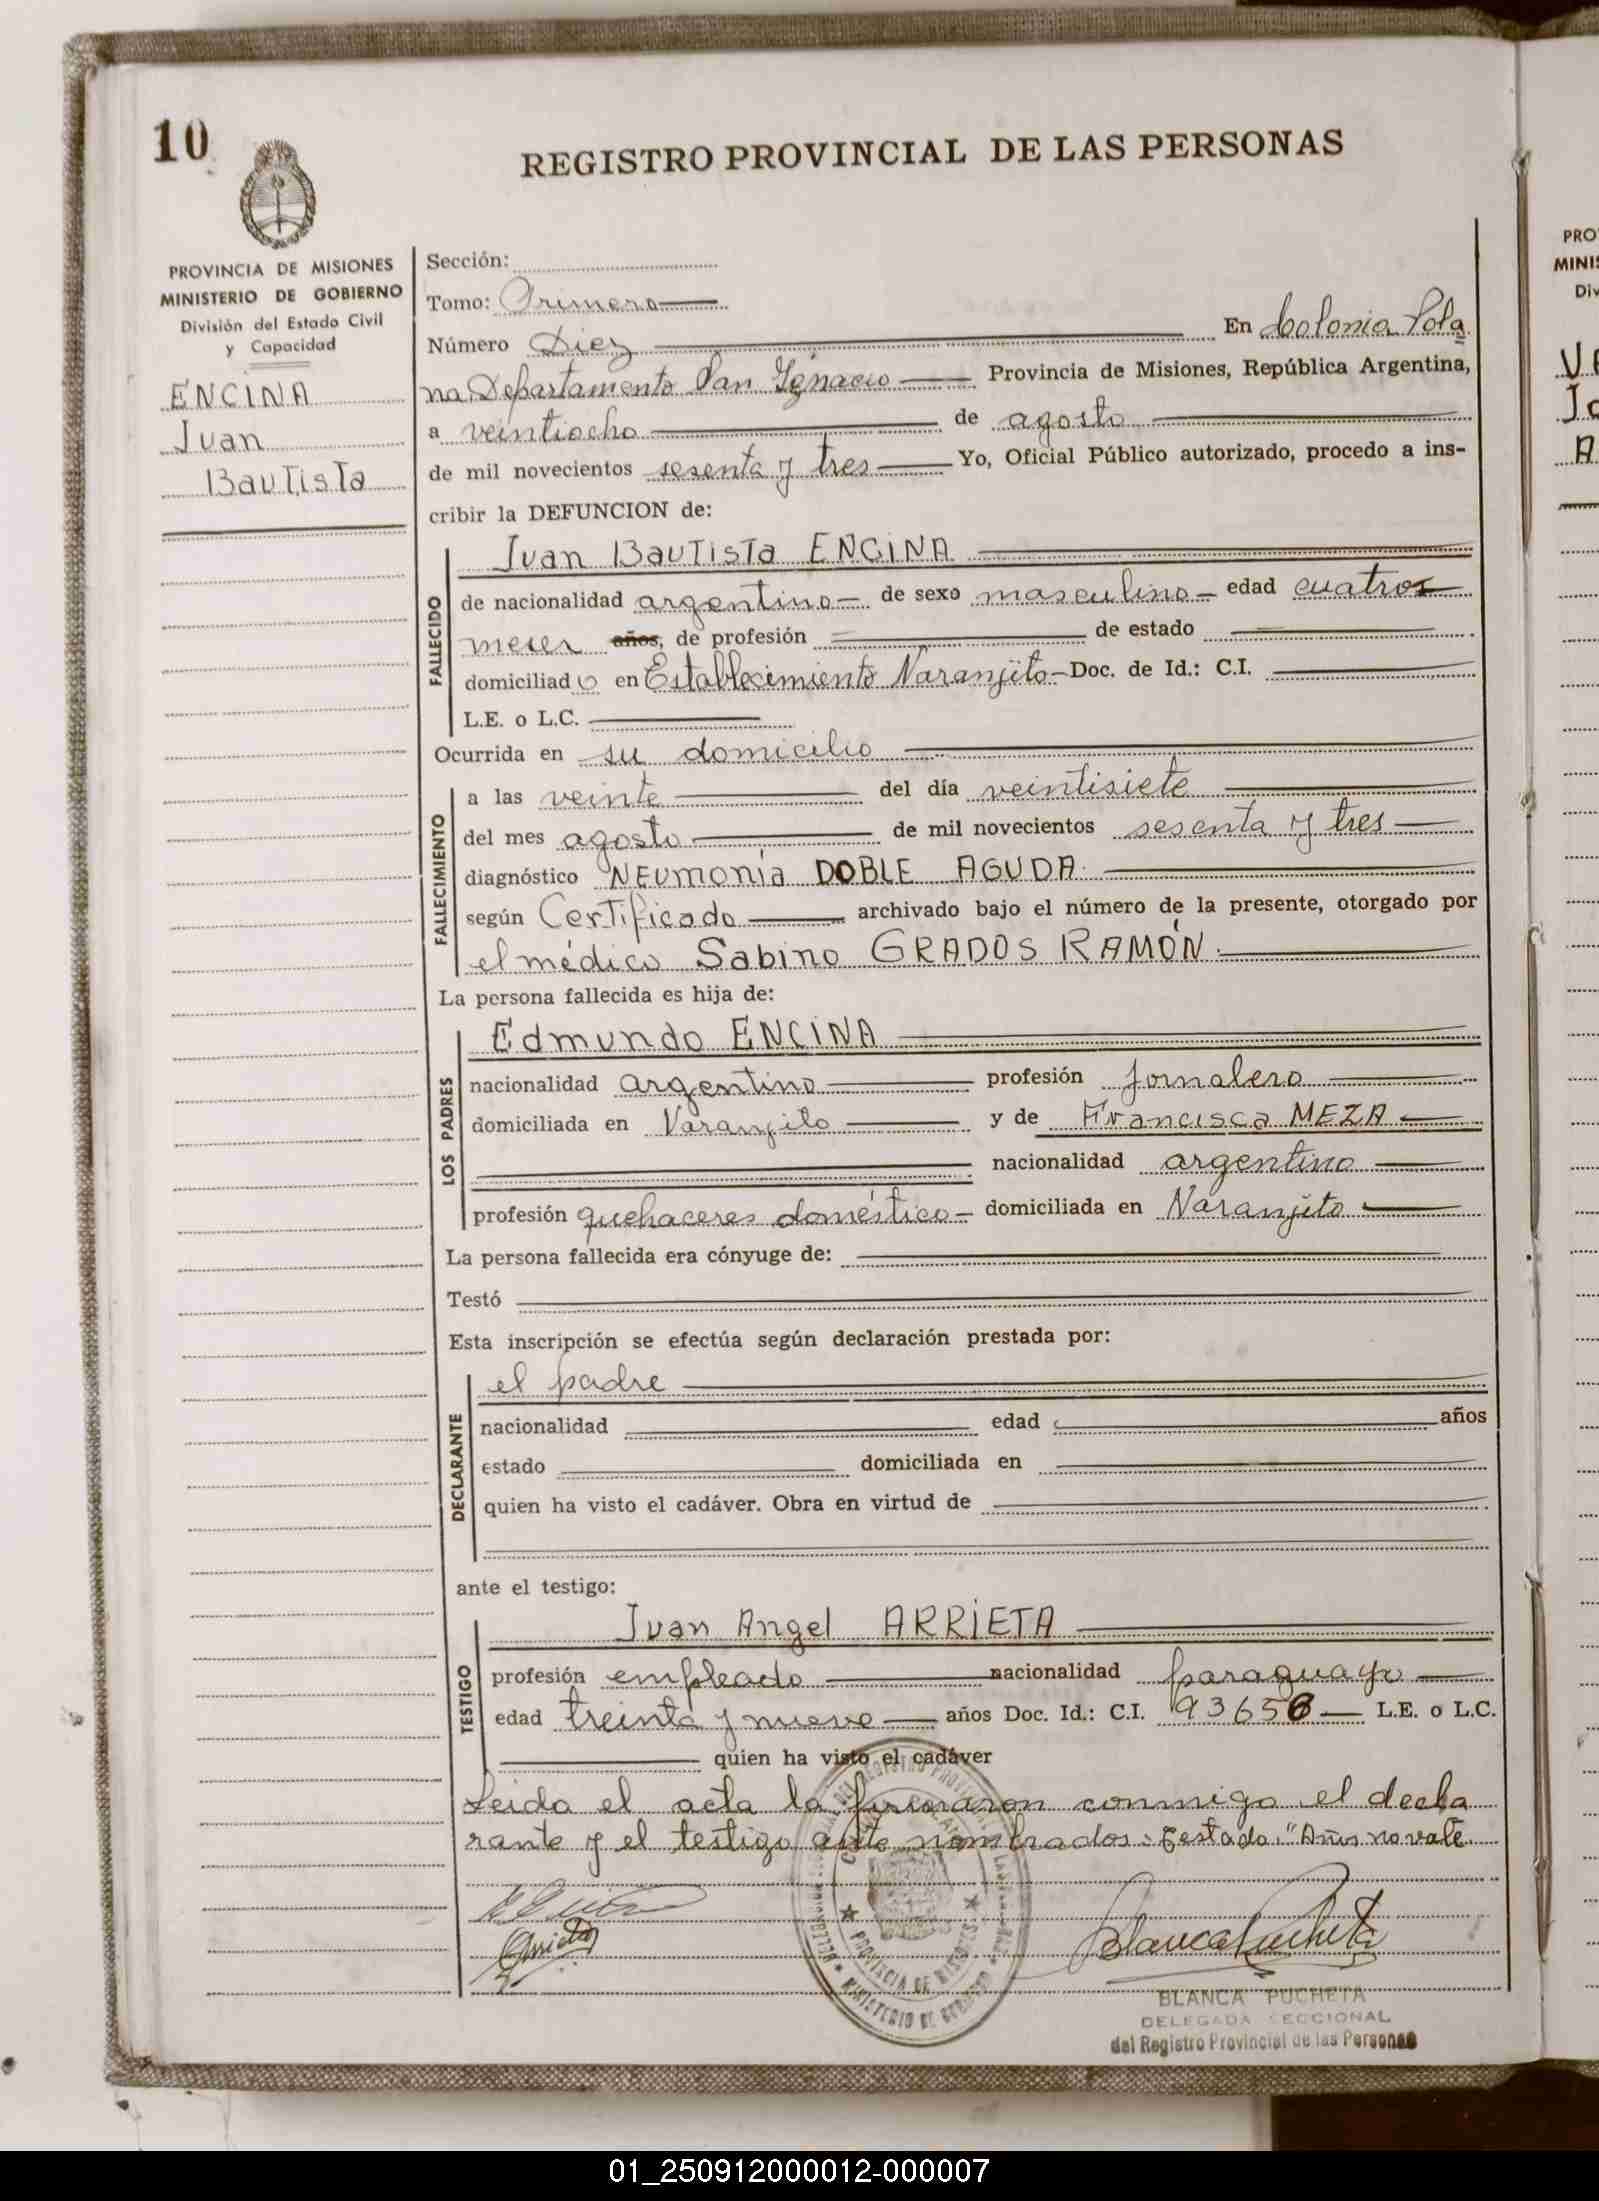 10
REGISTRO PROVINCIAL DE LAS PERSONAS
PROVINCIA DE MISIONES
MINISTERIO DE GOBIERNO
División del Estado Civil
y Capacidad
ENCINA
Juan
Bautista
Sección:
Tomo: Primero
Número Diez En Colonia Pola
na Departamento San Ignacio Provincia de Misiones, República Argentina,
a veintiocho de agosto
de mil novecientos sesenta y tres Yo, Oficial Público autorizado, procedo a ins-
cribir la DEFUNCION de:
FALLECIDO
Juan Bautista ENCINA
de nacionalidad argentino de sexo masculino edad cuatro
meses años, de profesión de estado
domiciliado en Establecimiento Naranjito Doc. de Id.: C.I.
L.E. o L.C.
Ocurrida en su domicilio
FALLECIMIENTO
a las veinte del día veintisiete
del mes agosto de mil novecientos sesenta y tres
diagnóstico NEUMONÍA DOBLE AGUDA
según Certificado archivado bajo el número de la presente, otorgado por
el médico Sabino GRADOS RAMÓN
La persona fallecida es hija de:
LOS PADRES
Edmundo ENCINA
nacionalidad argentino profesión jornalero
domiciliada en Naranjito y de Francisca MEZA
nacionalidad argentino
profesión quehaceres doméstico domiciliada en Naranjito
La persona fallecida era cónyuge de:
Testó
Esta inscripción se efectúa según declaración prestada por:
DECLARANTE
el padre
nacionalidad edad años
estado domiciliada en
quien ha visto el cadáver. Obra en virtud de
ante el testigo:
TESTIGO
Juan Angel ARRIETA
profesión empleado nacionalidad paraguayo
edad treinta y nueve años Doc. Id.: C.I. 93656 L.E. o L.C.
quien ha visto el cadáver
Leida el acta la firmaron conmigo el decla
rante y el testigo ante nombrados: Testado: "Años no vale
Arrieta
Blanca Pucheta
PROVINCIA DE MISIONES
MINISTERIO DE GOBIERNO
BLANCA PUCHETA
DELEGADA SECCIONAL
del Registro Provincial de las Personas
PRO
MINI
Div
01_250912000012-000007